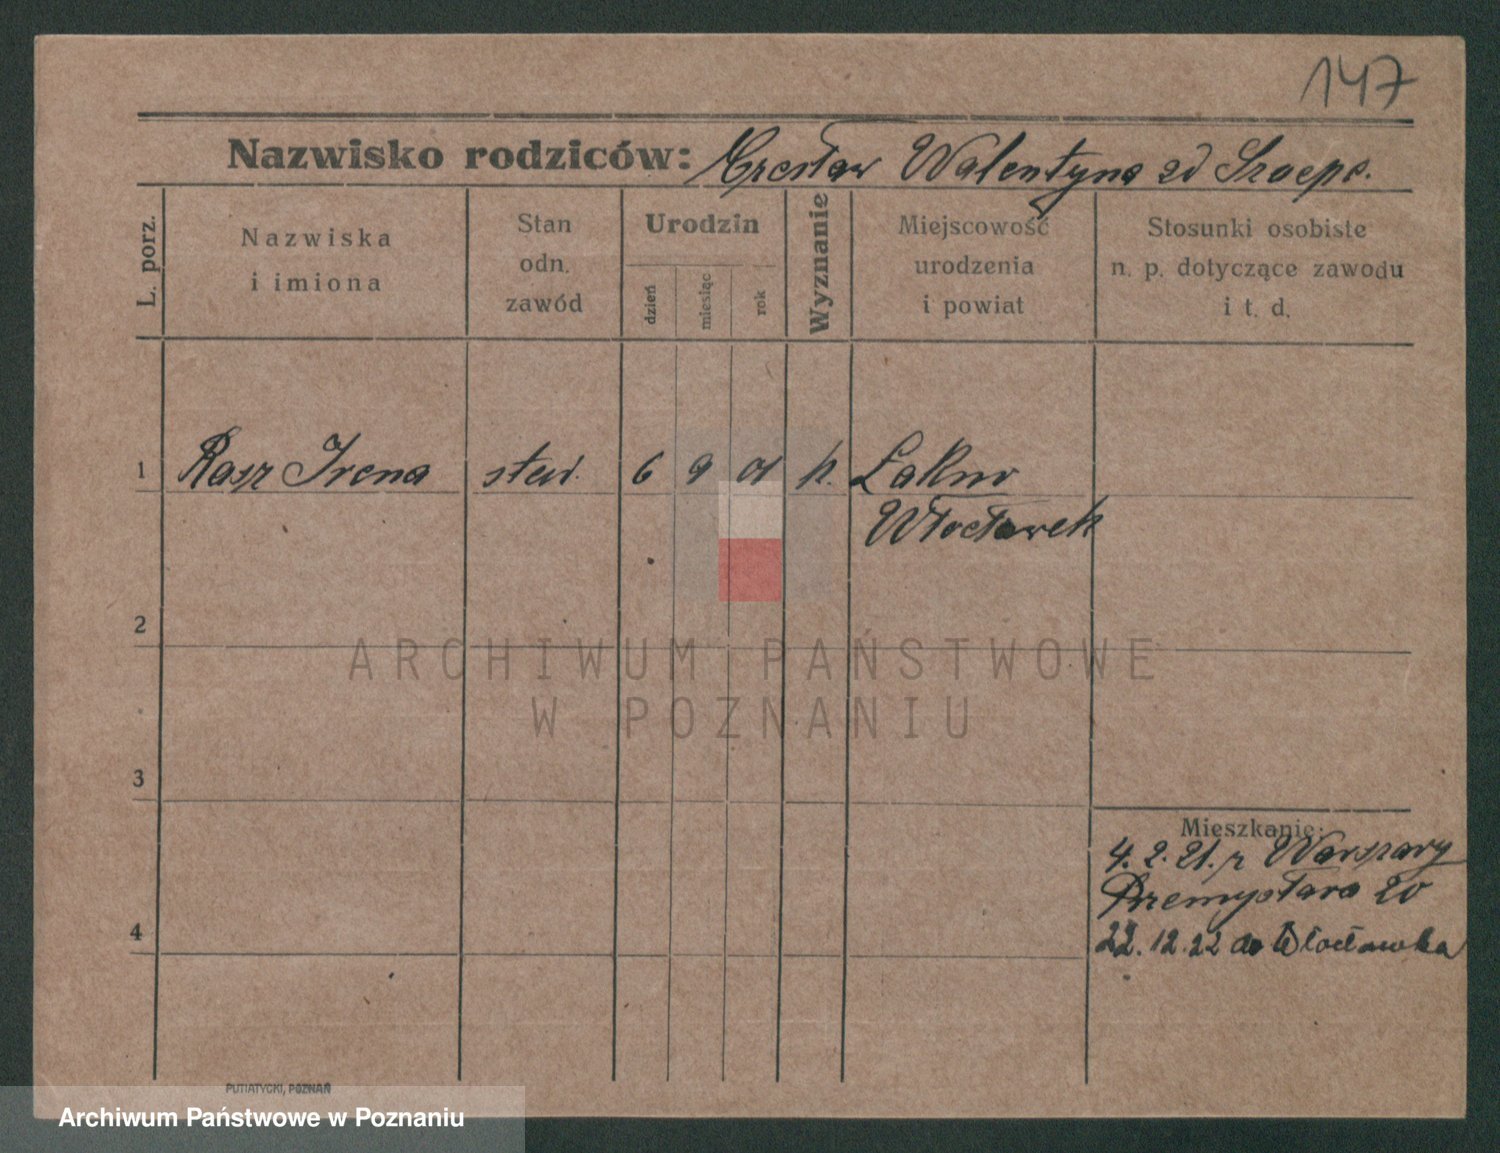 147
Nazwisko rodziców: Czesław Walentyna zd Szczepc.
L. porz.
Nazwiska i imiona
Stan odn. zawód
Urodzin
dzień
miesiąc
rok
Wyznanie
Miejscowość urodzenia i powiat
Stosunki osobiste n. p. dotyczące zawodu i t. d.
1 Rasz Irena 6 9 01 k.
Włocławek
2
3
4
Mieszkanie:
4. 2. 21. z Warszawy
Przemysława 20
22. 12. 22 do Włocławka
ARCHIWUM PAŃSTWOWE
W POZNANIU
PUTIATYCKI, POZNAŃ
Archiwum Państwowe w Poznaniu